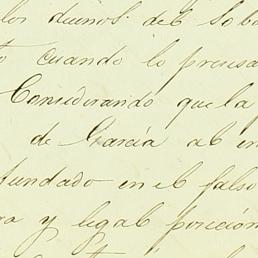 los dueños. del Sob
cuando lo prensa
Considerando que la
de Garcia al en
fundado en el falso
y legal posicion